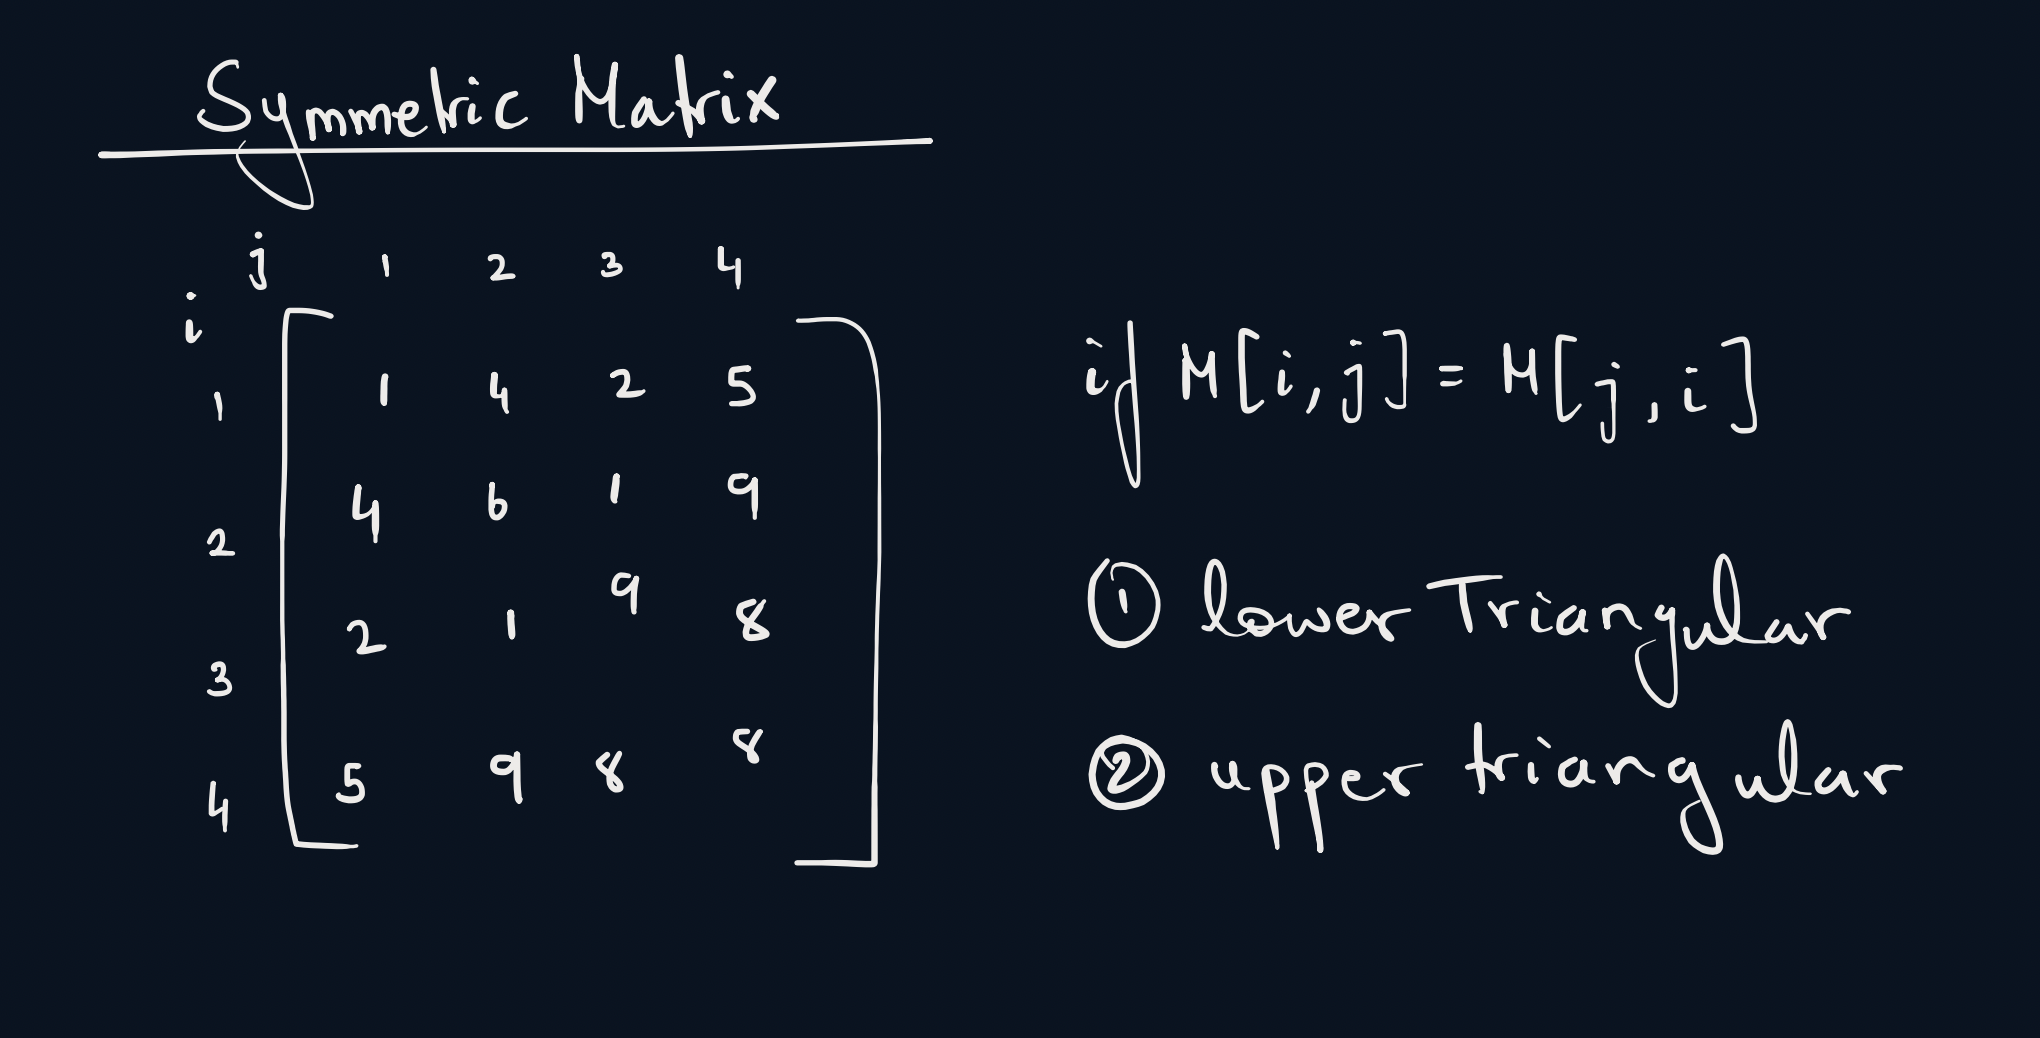 Symmetric Matrix
j 1 2 3 4
i
1 1 4 2 5
2 4 6 1 9
3 2 1 9 8
4 5 9 8 8
if M[i,j] = M[j,i]
① lower Triangular
② upper triangular